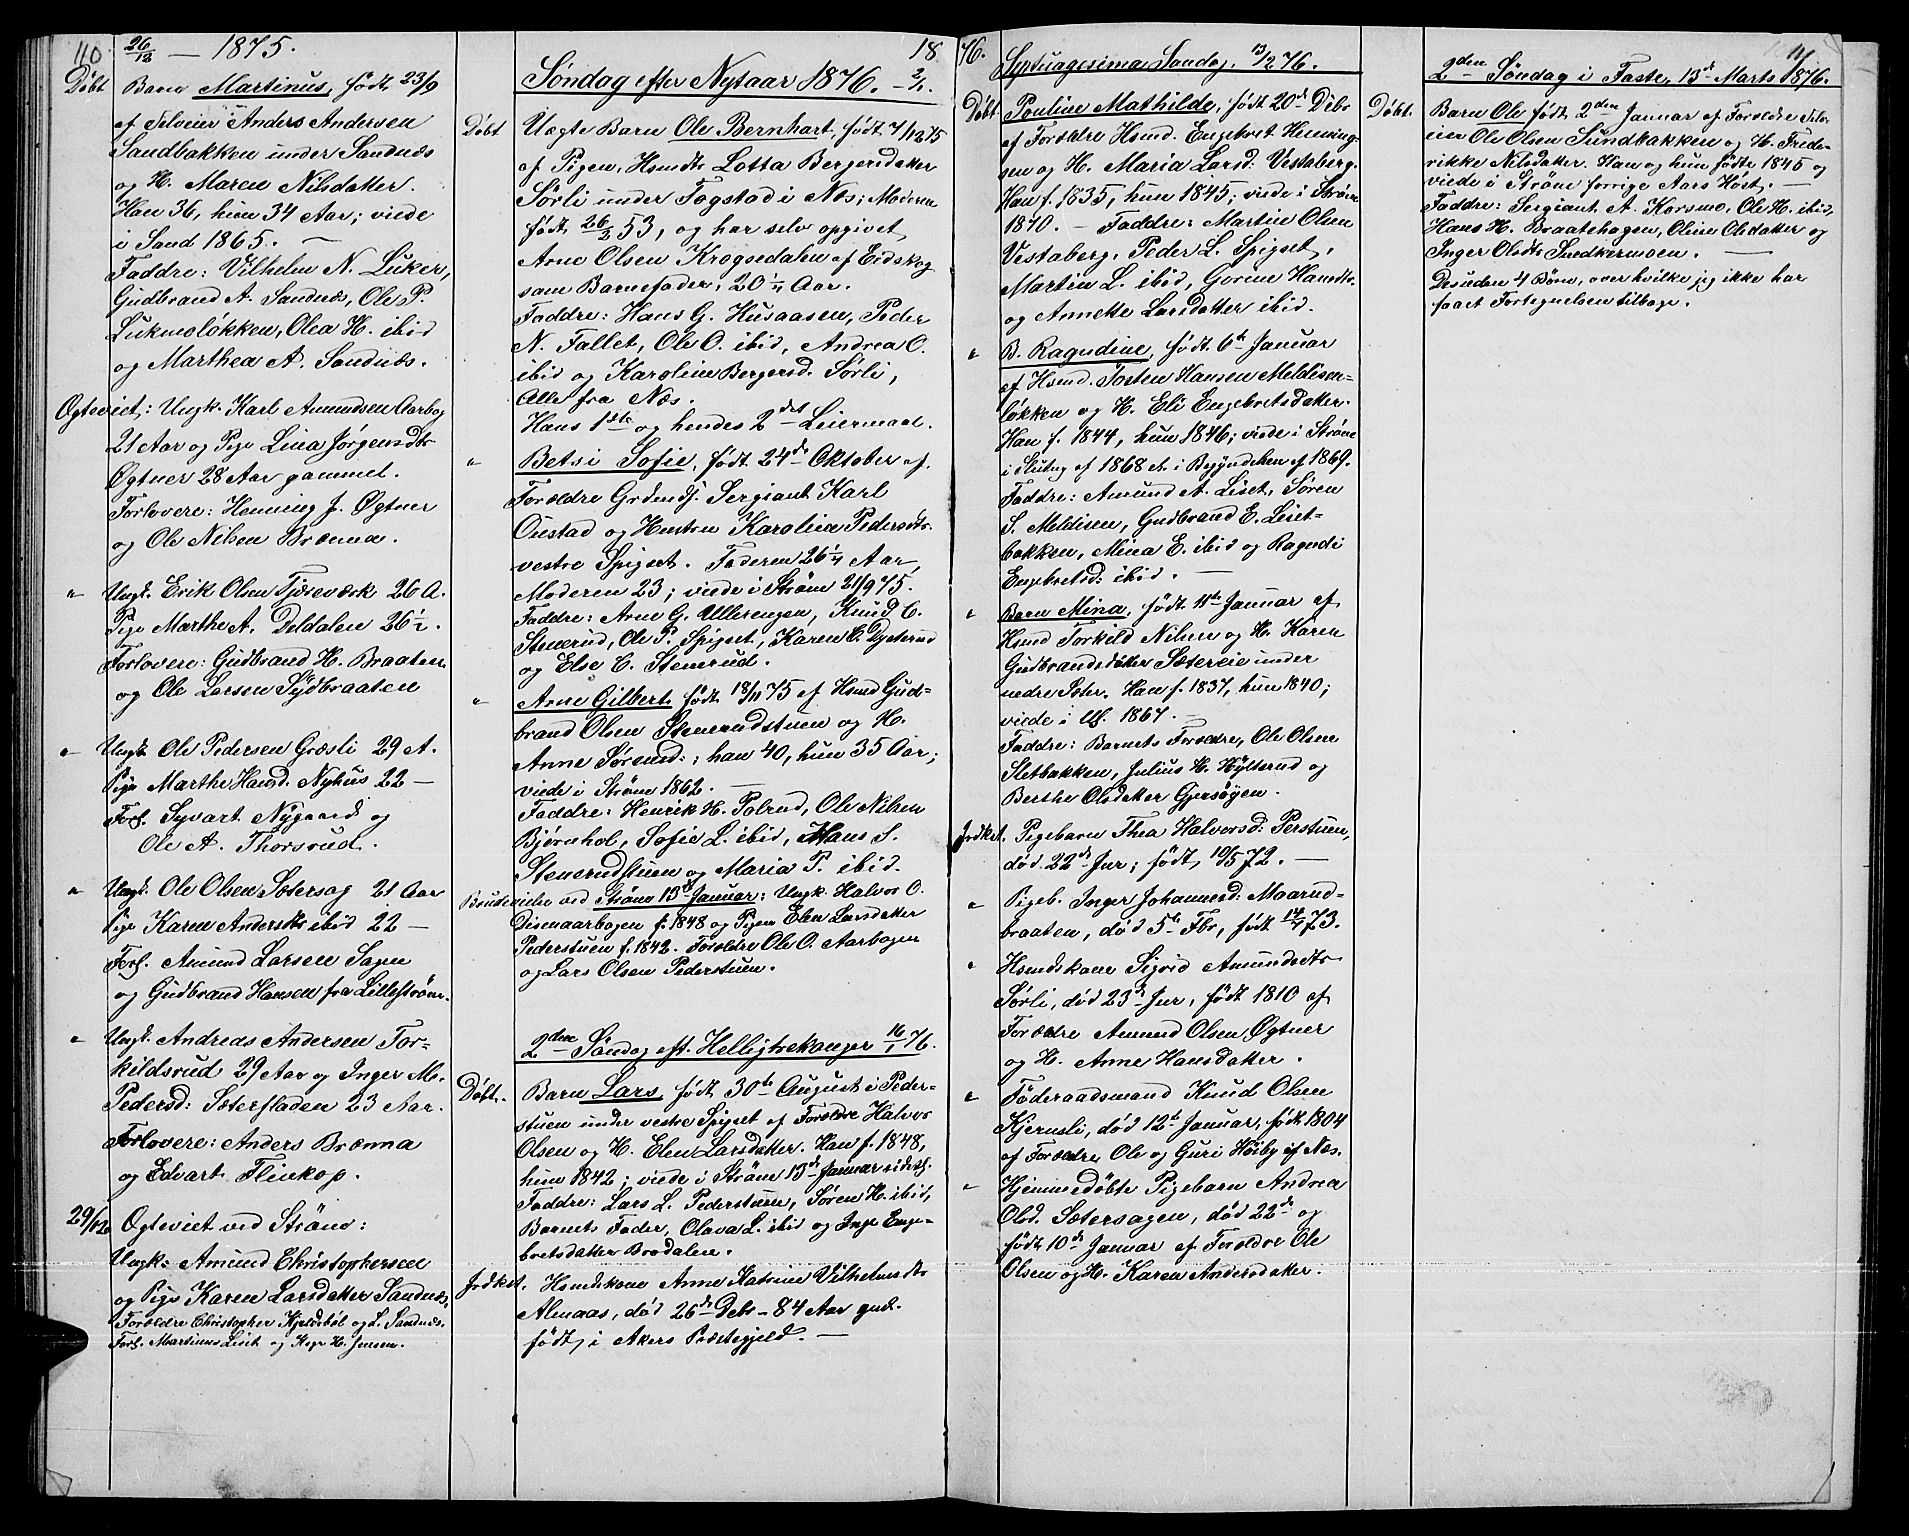 110
26/12 — 1875.
Döbt Barn Martinus, födt 23/9
af Selveier Anders Andersen
Sandbakken under Sandnæs
og H. Maren Nilsdatter.
Han 36, hun 34 Aar; viede
i Sand 1865. —
Faddre: Vilhelm N. Luker,
Gudbrand A. Sandnæs, Ole P.
Lukmoløkken, Olea H. ibid
og Marthea A. Sandnæs.
Ogteviet: Ungk. Karl Amundsen Aarbog
21 Aar og Pige Lina Jørgensdtr
Øgtner 28 Aar gammel.
Forlovere: Henning J. Øgtner
og Ole Nilsen Brænna.
" Ungk. Erik Olsen Tjereværk 26 A.
Pige Marthe A. Deldalen 26½.
Forlovere: Gudbrand H. Braaten
og Ole Larsen Sydbraaten
" Ungk. Ole Pedersen Græsli 29 A.
Pige Marthe Hansd. Nyhus 22 —
Forl. Syvart Nygaard og
Ole A. Thorsrud.
" Ungk. Ole Olsen Sætersag 21 Aar
Pige Karen Andersdtr ibid 22 —
Forl. Amund Larsen Sagen
og Gudbrand Hansen fra Lillestrøm.
" Ungk. Andreas Andersen Tor-
kildsrud 29 Aar og Inger M.
Pedersd: Sæterfladen 23 Aar.
Forlovere: Anders Brænna
og Edvart Flinkop.
29/12 Ogteviet ved Strøm:
Ungk. Amund Christophersen
og Pige Karen Larsdatter Sandnæs,
Forældre Christopher Kjeldsbøl og L. Sandnæs.
Forl. Martinus Liset og H. Jensen.
18
Søndag efter Nytaar 1876. 2/1.
Döbt Uægte Barn Ole Bernhart, født 7/12 75
af Pigen, Hsmdtr Lotta Bergersdatter
Sørli under Fogstad i Næs; Moderen
født 26/2 53, og har selv opgivet
Arne Olsen Krogsedalen af Eidskog
som Barnefader, 20¼ Aar.
Faddre: Hans G. Husaasen, Peder
N. Fallet, Ole O. ibid, Andrea O.
ibid og Karoline Bergersd. Sørli,
Alle fra Næs.
Hans 1ste og hendes 2det Leiermaal.
" Betsi Sofie, født 24de Oktober af
Forældre Grdmds. Sergiant Karl
Oustad og Hustru Karolina Pedersdtr
vestre Spigset. Faderen 26¼ Aar,
Moderen 23; viede i Strøm 21/9 75.
Faddre: Arne G. Ullerengen, Knud C.
Stenerud, Ole P. Spigset, Karen E. Dysterud
og Else C. Stenerud.
" Arne Gilbert, født 18/11 75 af Hsmd Gud-
brand Olsen Stenerudstuen og H.
Anne Sørensd.; han 40, hun 35 Aar;
viede i Strøm 1862. —
Faddre: Henrik H. Polrud, Ole Nilsen
Bjørnhol, Sofie L. ibid, Hans S.
Stenerudstuen og Maria P. ibid.
Brudeviede ved Strøm 13de Januar: Ungk. Halvor O.
Disenaarbogen f. 1848 og Pigen Elen Larsdatter
Pederstuen f. 1842. Forældre Ole O. Aarbogen
og Lars Olsen Pederstuen.
2den Søndag eft. Helligtrekonger 16/1 76.
Döbt. Barn Lars, født 30te August i Peder-
stuen under vestre Spigset af Forældre Halvor
Olsen og H. Elen Larsdatter. Han f. 1848,
hun 1842; viede i Strøm 13de Januar sidstl.
Faddre: Lars L. Pederstuen, Søren H. ibid,
Barnets Fader, Olava L. ibid og Inge Enge-
bretsdatter Brodalen.
Jrdkst. Hsmdskone Anne Katrine Vilhelmsdtr
Almaas, død 26de Debr — 84 Aar gml.
født i Akers Præstegjeld. —
76.
Septuagesima Søndag, 13/2 76.
Döbt Pouline Mathilde, født 20de Debr
af Forældre Hsmd. Engebret Henning-
sen og H. Maria Larsd. Vestaberg.
Han f. 1835, hun 1845; viede i Strøm
1870. — Faddre: Martin Olsen
Vestaberg, Peder L. Spigset,
Martin L. ibid, Gorine Hansdtr.
og Annette Larsdatter ibid.
" B. Ragndine, født 6te Januar
af Hsmd. Tosten Hansen Meldisen-
løkken og H. Eli Engebretsdatter.
Han f. 1844, hun 1846; viede i Strøm
i Slutng af 1868 el. i Begyndelsen af 1869.
Faddre: Amund A. Liset, Søren
S. Meldisen, Gudbrand E. Liset-
bakken, Mina E. ibid og Ragndi
Engebretsd. ibid. —
" Barn Mina, født 11te Januar af
Hsmd Torkild Nilsen og H. Karen
Gudbrandsdatter Sætereie under
nedre Seter. Han f. 1837, hun 1840;
viede i Ul. 1867. —
Faddre: Barnets Forældre, Ole Olsen
Sletbakken, Julius H. Hylterud og
Berthe Olsdatter Gjersøyen.
Jrdkst. Pigebarn Thea Halvorsd: Perstuen,
død 22de Jnr; født 10/5 72. —
" Pigeb. Inger Johannesd: Maarud-
braaten, død 5te Fbr, født 14/4 73.
" Hsmdskone Sigrid Amundsdtr
Sørli, død 23de Jnr, født 1810 af
Forældre Amund Olsen Øgtner
og H. Anne Hansdatter.
" Föderaadsmand Knud Olsen
Kjernsli, død 12te Januar, født 1804
af Forældre Ole og Guri Høiby af Næs.
" Hjemmedøbte Pigebarn Andrea
Olsd. Sætersagen, død 22de og
født 10de Januar af Forældre Ole
Olsen og H. Karen Andersdatter.
2den Søndag i Faste, 13de Marts 1876.
Döbt. Barn Ole født 2den Januar af Forældre Selv-
eier Ole Olsen Sundbakken og H. Frede-
rikke Nilsdatter. Han og hun født 1846 og
viede i Strøm forrige Aars Høst. —
Faddre: Sergiant A. Korsmo, Ole H. ibid,
Hans H. Braatehagen, Oline Olsdatter og
Inger Olsdtr Snedkermoen. —
Desuden 4 Børn, over hvilke jeg ikke har
faaet Fortegnelsen tilbage.